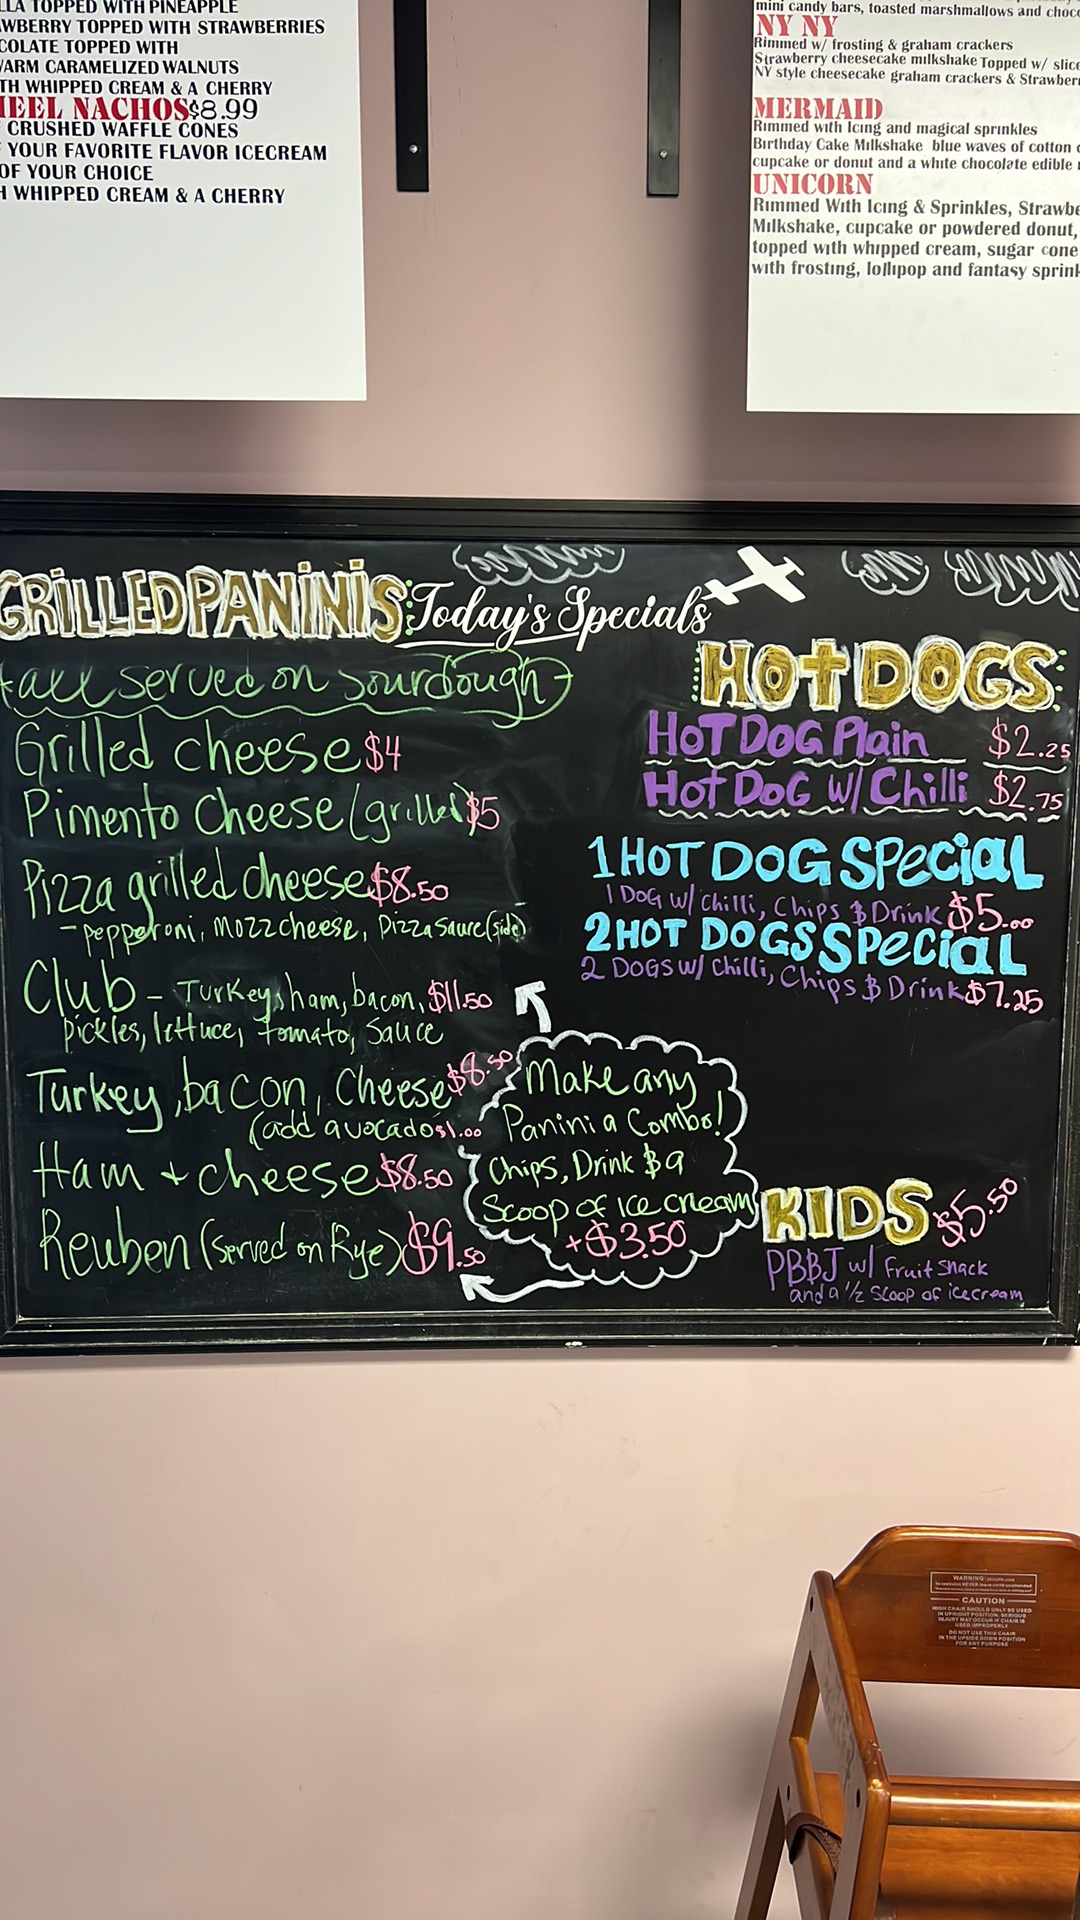 TOPPED WITH PINEAPPLE
TOPPED WITH STRAWBERRIES
TOPPED WITH
CARAMELIZED WALNUTS
WHIPPED CREAM & A CHERRY
NACHOS $8.99
CRUSHED WAFFLE CONES
YOUR FAVORITE FLAVOR ICECREAM
OF YOUR CHOICE
WHIPPED CREAM & A CHERRY
mini candy bars, toasted marshmallows and
NY NY
Rimmed w/ frosting & graham crackers
Strawberry cheesecake milkshake Topped w/
NY style cheesecake graham crackers &
MERMAID
Rimmed with Icing and magical sprinkles
Birthday Cake Milkshake blue waves of cotton
cupcake or donut and a white chocolate edible
UNICORN
Rimmed With Icing & Sprinkles,
Milkshake, cupcake or powdered donut,
topped with whipped cream, sugar cone
with frosting, lollipop and fantasy
GRiLLED PANiNiS
Today's Specials
all served on sourdough
Grilled cheese $4
Pimento cheese (grilled) $5
Pizza grilled cheese $8.50
- pepperoni, Mozz cheese, Pizza sauce (side)
Club - Turkey, ham, bacon, $11.50
pickles, lettuce, tomato, sauce
Turkey, bacon, Cheese $8.50
(add avocado $1.00
Ham + cheese $8.50
Reuben (served on Rye) $9.50
Make any
Panini a Combo!
Chips, Drink & a
Scoop of ice cream
+ $3.50
HOt DOGS
HoT DOG Plain $2.25
Hot DoG W/ Chilli $2.75
1 HOT DOG SPeciaL
1 DOG W/ Chilli, Chips & Drink $5.00
2 HOT DOGS SPeciaL
2 DOGS W/ Chilli, Chips & Drink $7.25
KIDS $5.50
PB&J w/ Fruit snack
and a 1/2 scoop of ice cream
WARNING
CAUTION
HIGH CHAIR SHOULD ONLY BE USED
IN UPRIGHT POSITION. SERIOUS
INJURY MAY OCCUR IF CHAIR IS
USED IMPROPERLY
DO NOT USE THIS CHAIR
IN THE UPSIDE DOWN POSITION
FOR ANY PURPOSE